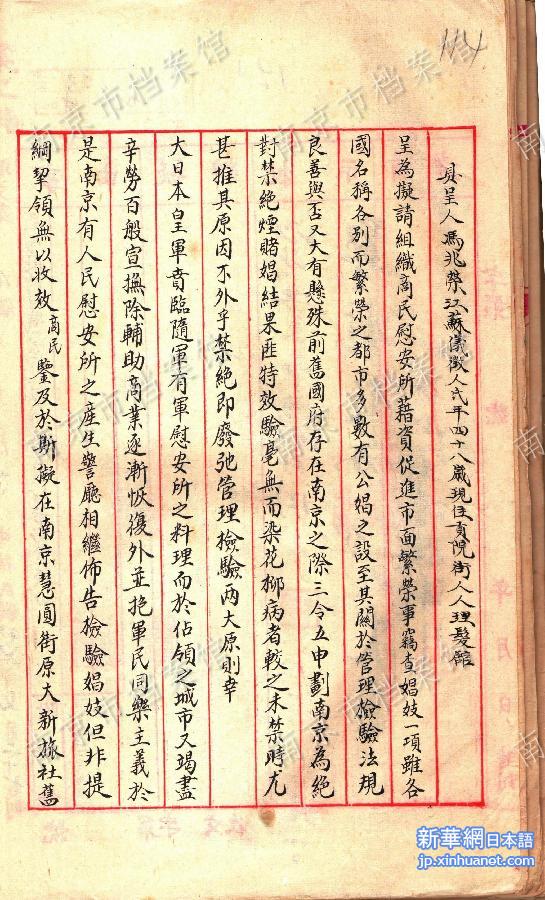 114
具呈人馮兆榮江蘇儀徵人民年四十八歲現住貢院街人人理髮館
呈為擬請組織商民慰安所藉資促進市面繁榮事竊查娼妓一項雖各
國名稱各別而繁榮之都市多數有公娼之設至其關於管理檢驗法規
良善與否又大有懸殊前舊國府存在南京之際三令五申劃南京為絕
對禁絕煙賭娼結果匪特效驗毫無而染花柳病者較之未禁時尤
甚推其原因不外乎禁絕即廢弛管理檢驗兩大原則幸
大日本皇軍賁臨隨軍有軍慰安所之料理而於佔領之城市又竭盡
辛勞百般宣撫除輔助商業逐漸恢復外並抱軍民同樂主義於
是南京有人民慰安所之產生警廳相繼佈告檢驗娼妓但非提
綱挈領無以收效商民鑒及於斯擬在南京慧圓街原大新旅社舊
南京市档案馆
新華網日本語
jp.xinhuanet.com